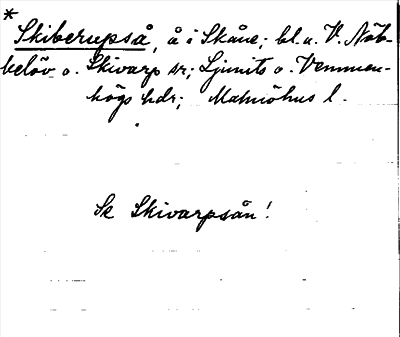 *
Skiberupså, å i Skåne; bl. a. V. Nöb-
belöv o. Skivarp sr; Ljunits o. Vemmen-
högs hdr; Malmöhus l.
Se Skivarpsån!